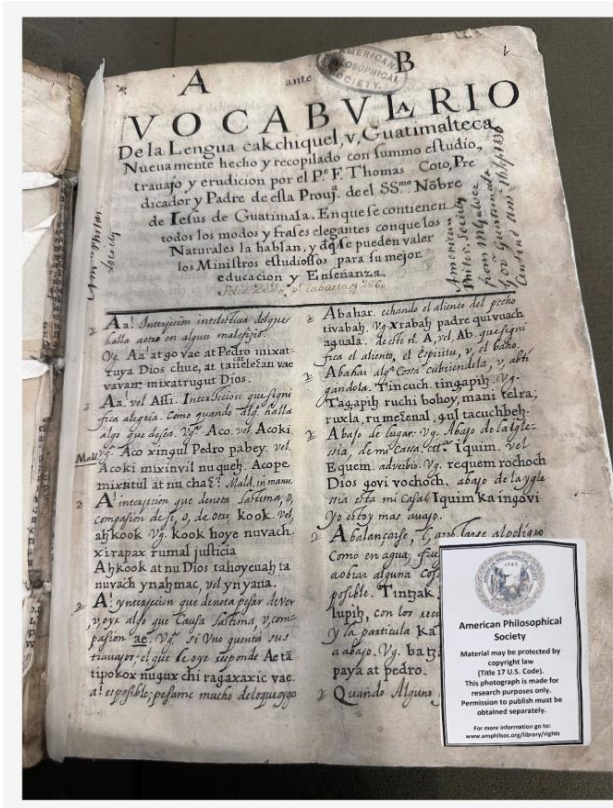 A ante B
AMERICAN
PHILOSOPHICAL
SOCIETY.
VOCABVLARIO
De la Lengua cakchiquel, v, Guatimalteca
Nueuamente hecho y recopilado con summo estudio,
trauajo y erudicion por el P.e F. Thomas Coto, Pre
dicador y Padre de esta Prouj.a de el SS.mo Nõbre
de Iesus de Guatimala. En que se contienen
todos los modos y frases elegantes conque los
Naturales la hablan, y dq̃ se pueden valer
los Ministros estudiosos para su mejor
educacion y Enseñanza.
American
Philos. Society
from
Gov. Guatemala
Aa! Interjecion
halla
Vg. Aa! at go vae at Pedro mixat
ruya Dios chue, at
vavam mixatrugut Dios.
Aa! vel Assi. Interjecion que signi
fica alegria. Como quando alg.o halla
algo que desea. Vg. Aco. vel Acoki
Vg. Aco xingul Pedro pabey. vel
Acoki mixinvil nuqueh. Acope
mixutul at nu
A! interjecion que denota lastima, o,
compasion desi, o, de otro kook. Vel,
ahkook Vg. kook hoye nuvach
xirapax rumal justicia
Ahkook at nu Dios tahoyeuah ta
nuvach ynahmac, vel yn yana.
A! ynterjecion que denota pesar de ver
v, oye algo que causa lastima, v, com
pasion ae. Vg. si Vno quenta sus
trauajos; el que le oye responde Ae tã
tipokox nugux chi ragaxaxic vae.
a! es posible; pesame mucho de loque oygo
Abahar. echando el aliento del pecho
tivabah. Vg. Xrabah padre quivuach
aguala. de este n. A, vel, Ab. que signi
fica el aliento, el Espiritu, v, el baho.
Abahar alg.a Cossa cubriendola, v, abri
gandola. Tincuch. tingapih. Vg.
Tagapih ruchi bohoy, mani telra;
ruxla, ru gul tacuchbeh.
Abajo de lugar. Vg. Abajo de la Igle-
sia, de mi Cassa. Iquim. vel
Equem. adverbio. Vg. requem rochoch
Dios govi vochoch. abajo de la ygle
sia esta mi casa. Iquim ka ingovi
Yo estoy mas auajo.
Abalançarse,
Como en agua,
aobiar alguna
posible. Tintzak,
lupih, con los
Y la particula Ka
a abajo. Vg.
paya at pedro.
Quando Alguno
American Philosophical
Society
Material may be protected by
copyright law
(Title 17 U.S. Code).
This photograph is made for
research purposes only.
Permission to publish must be
obtained separately.
For more information go to:
www.amphilsoc.org/library/rights